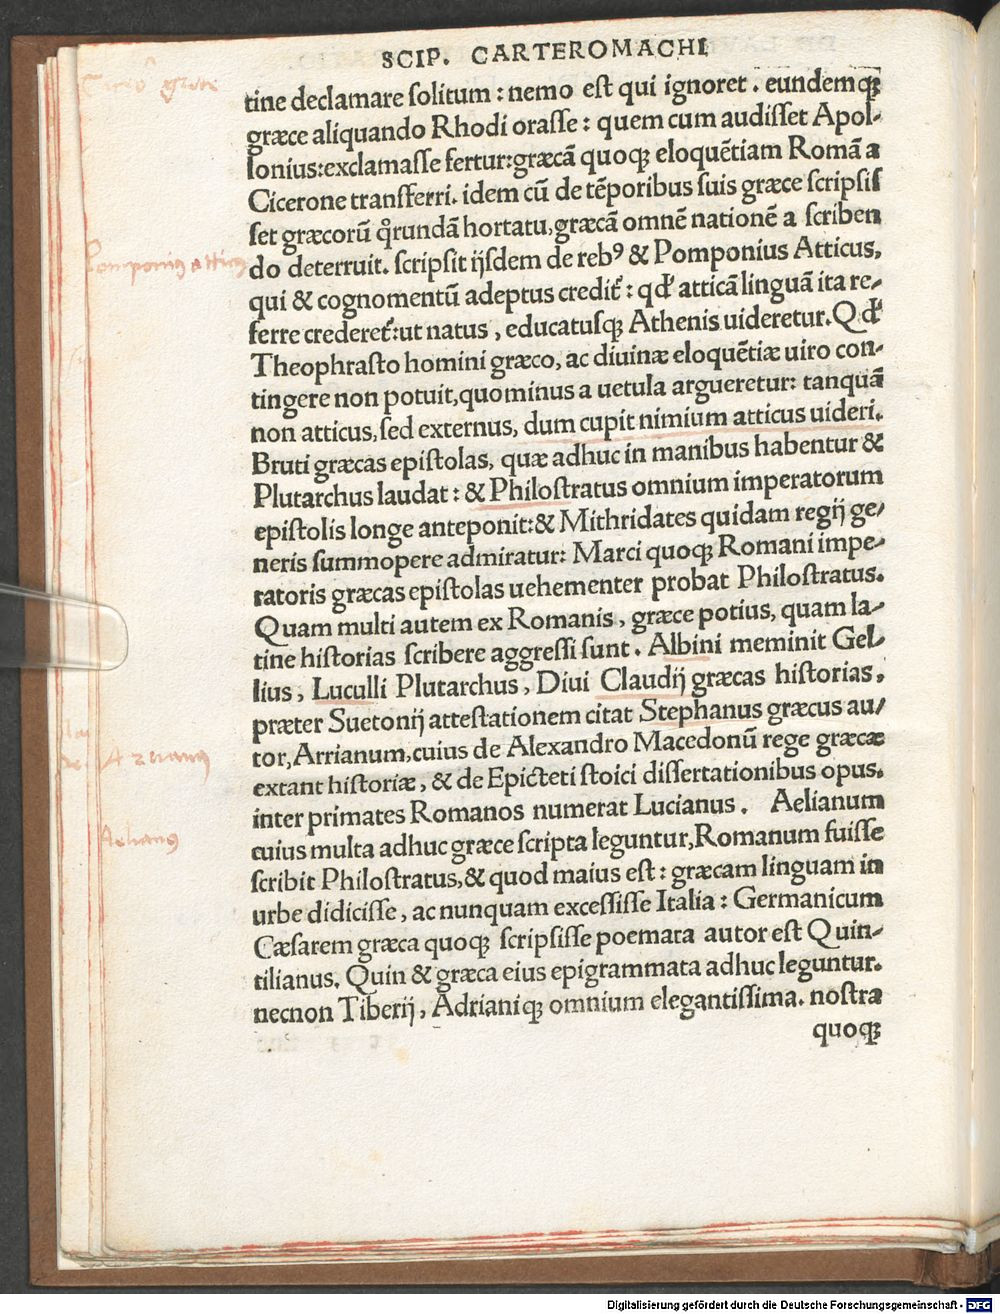 SCIP. CARTEROMACHI
tine declamare ſolitum : nemo eſt qui ignoret . eundemq;
græce aliquando Rhodi oraſſe : quem cum audiſſet Apol-
lonius:exclamaſſe fertur:græcã quoq; eloquẽtiam Romã a
Cicerone transferri. idem cũ de tẽporibus ſuis græce ſcripſiſ
ſet græcorũ qrundã hortatu,græcã omnẽ nationẽ a ſcriben
do deterruit. ſcripſit ijſdem de rebꝰ & Pomponius Atticus,
qui & cognomentũ adeptus credit᷑ : qd' atticã linguã ita re-
ferre crederet᷑:ut natus , educatuſq; Athenis uideretur. Qd'
Theophraſto homini græco, ac diuinæ eloquẽtiæ uiro con-
tingere non potuit,quominus a uetula argueretur: tanquã
non atticus, ſed externus, dum cupit nimium atticus uideri.
Bruti græcas epiſtolas, quæ adhuc in manibus habentur &
Plutarchus laudat : & Philoſtratus omnium imperatorum
epiſtolis longe anteponit:& Mithridates quidam regij ge-
neris ſummopere admiratur: Marci quoq; Romani impe-
ratoris græcas epiſtolas uehementer probat Philoſtratus.
Quam multi autem ex Romanis , græce potius, quam la-
tine hiſtorias ſcribere aggreſſi ſunt . Albini meminit Gel-
lius , Luculli Plutarchus , Diui Claudij græcas hiſtorias,
præter Suetonij atteſtationem citat Stephanus græcus au-
tor, Arrianum,cuius de Alexandro Macedonũ rege græcæ
extant hiſtoriæ , & de Epicteti ſtoici diſſertationibus opus.
inter primates Romanos numerat Lucianus . Aelianum
cuius multa adhuc græce ſcripta leguntur, Romanum fuiſſe
ſcribit Philoſtratus,& quod maius eſt : græcam linguam in
urbe didiciſſe , ac nunquam exceſſiſſe Italia : Germanicum
Cæſarem græca quoq; ſcripſiſſe poemata autor eſt Quin-
tilianus. Quin & græca eius epigrammata adhuc leguntur.
necnon Tiberij , Adrianiq; omnium elegantiſſima. noſtra
quoq;
Pomponius atticus
Arrianus
Aelianus
Digitalisierung gefördert durch die Deutsche Forschungsgemeinschaft - DFG